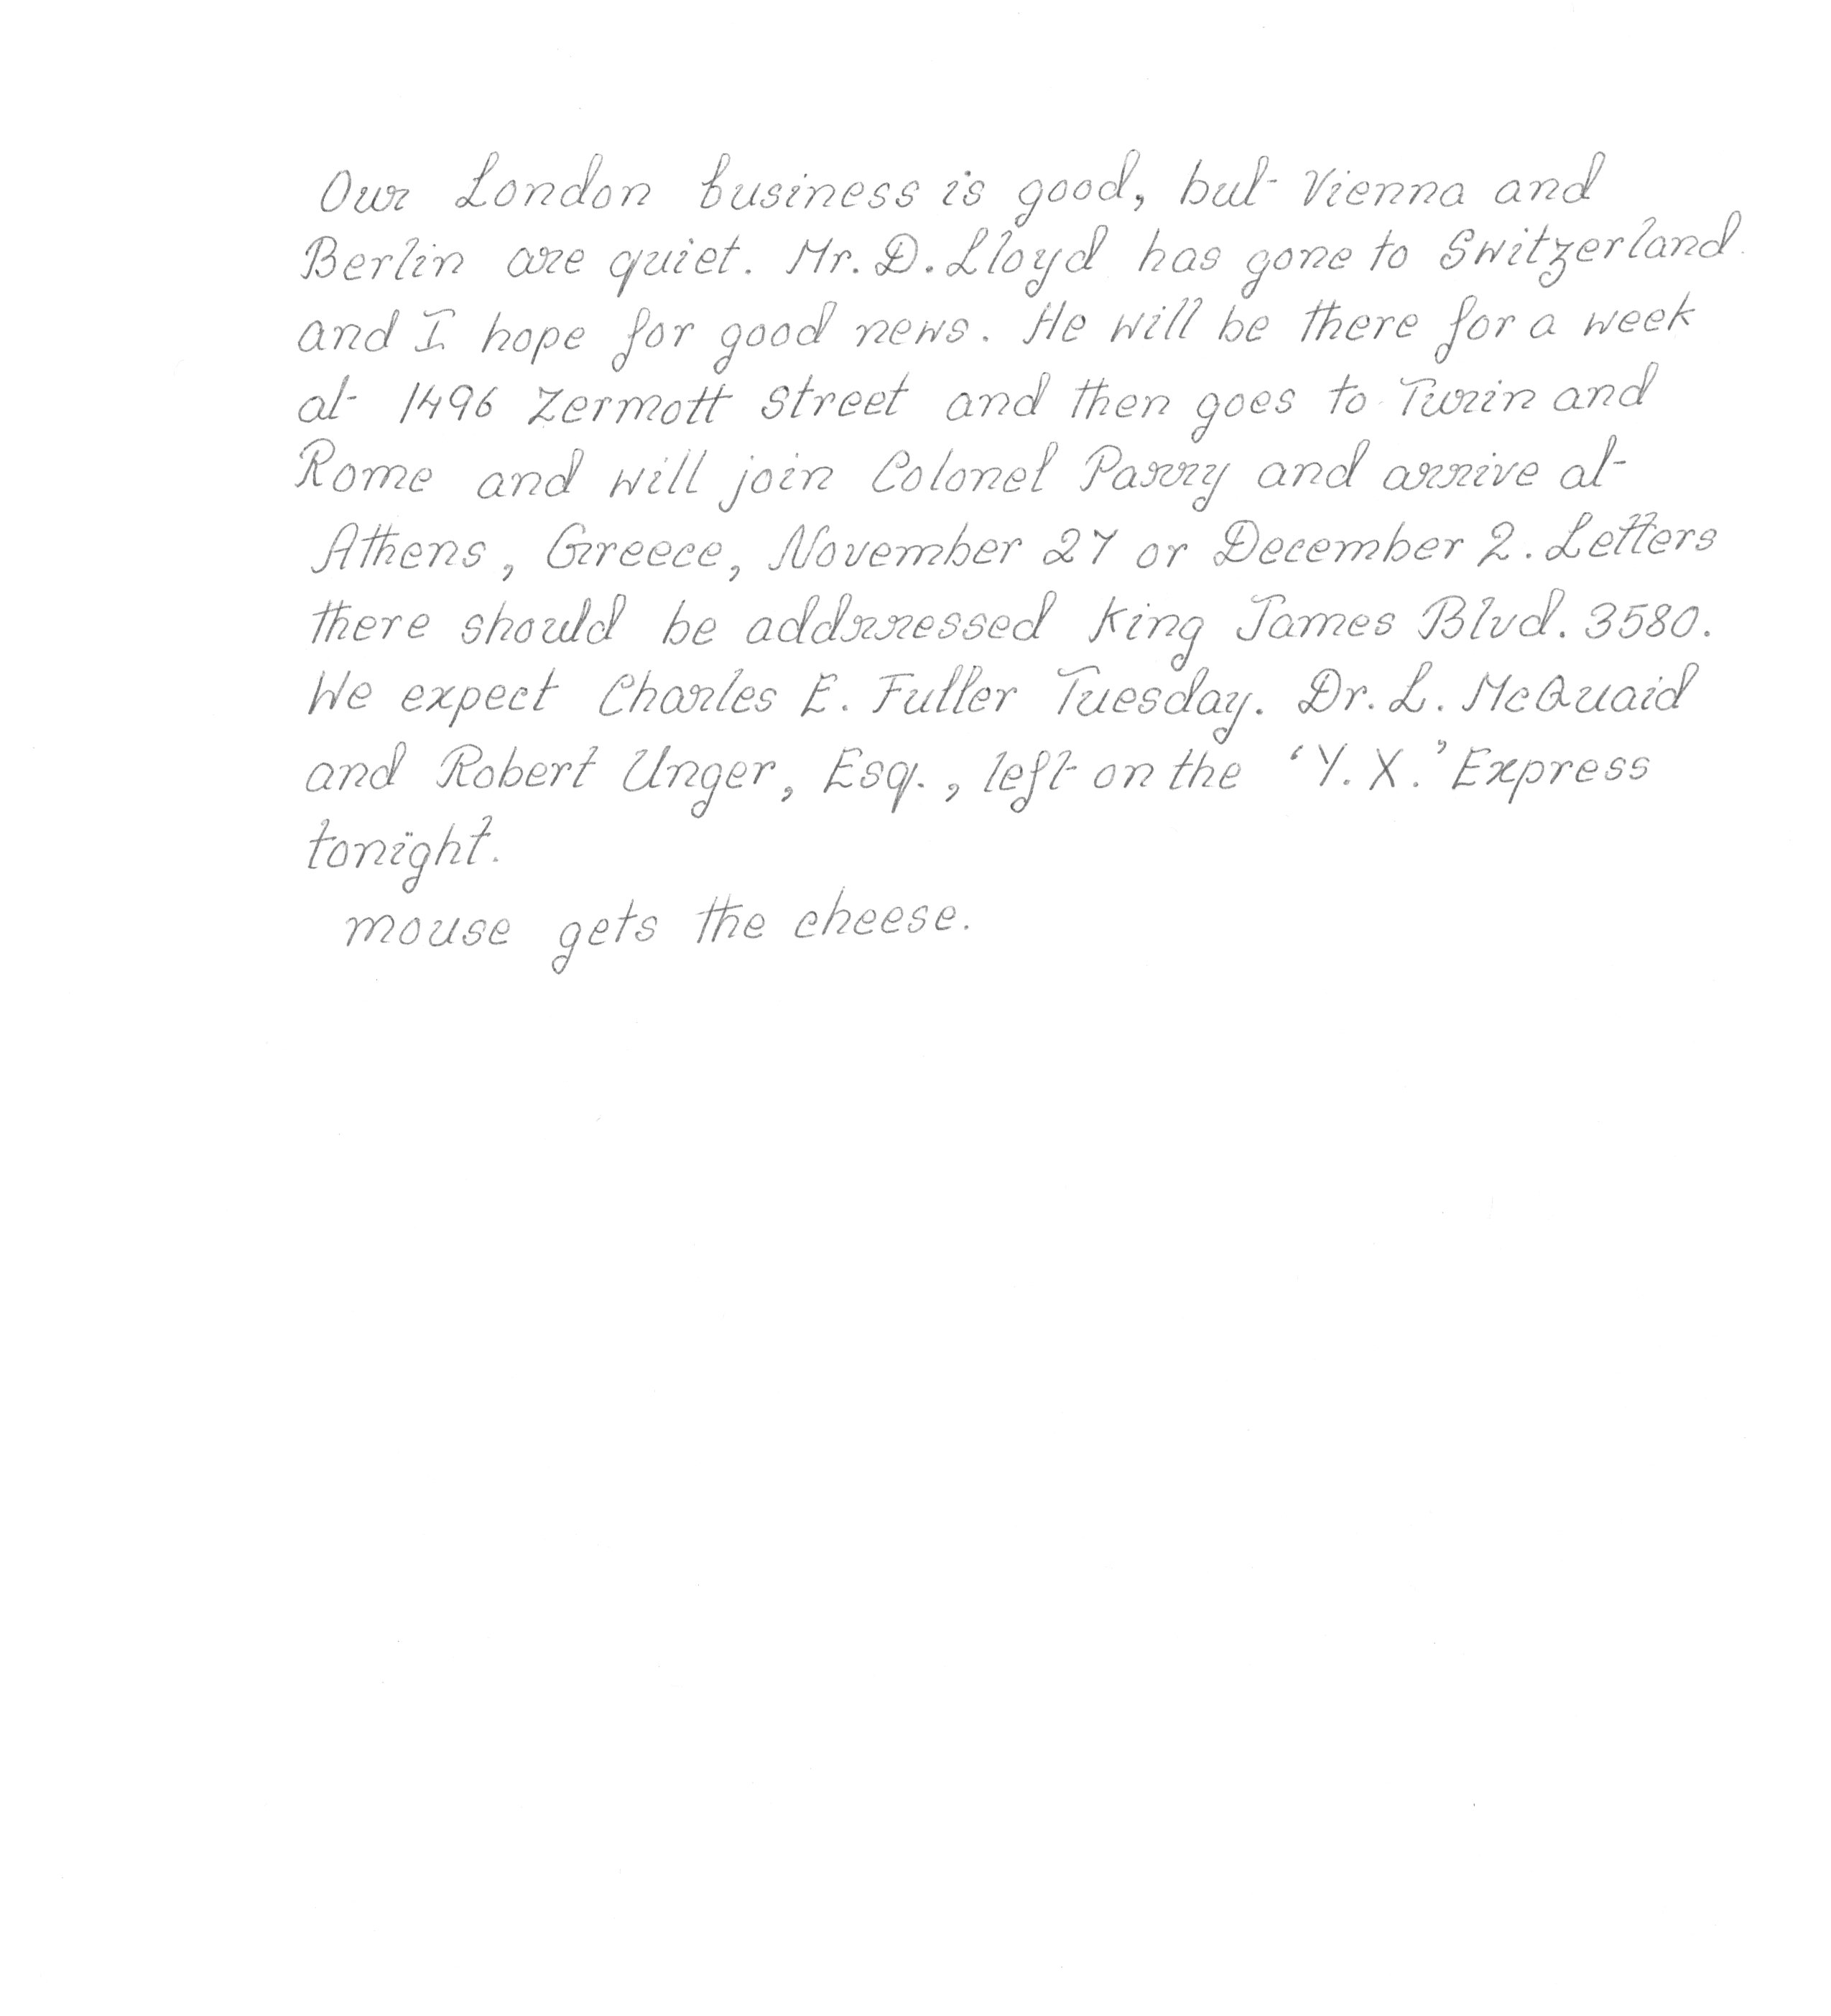 Our London business is good, but Vienna and
Berlin are quiet. Mr. D. Lloyd has gone to Switzerland
and I hope for good news. He will be there for a week
at 1496 Zermott street and then goes to Turin and
Rome and will join Colonel Parry and arrive at
Athens, Greece, November 27 or December 2. Letters
there should be addrressed King James Blvd. 3580.
We expect Charles E. Fuller Tuesday. Dr. L. McQuaid
and Robert Unger, Esq., left on the 'Y. X.' Express
tonight.
mouse gets the cheese.